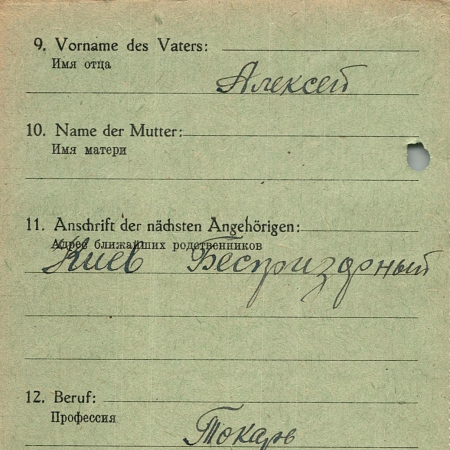 9. Vorname des Vaters:
Имя отца
Алексей
10. Name der Mutter:
Имя матери
11. Anschrift der nächsten Angehörigen:
Адрес ближайших родственников
Киев Беспризорный
12. Beruf:
Профессия
Токарь